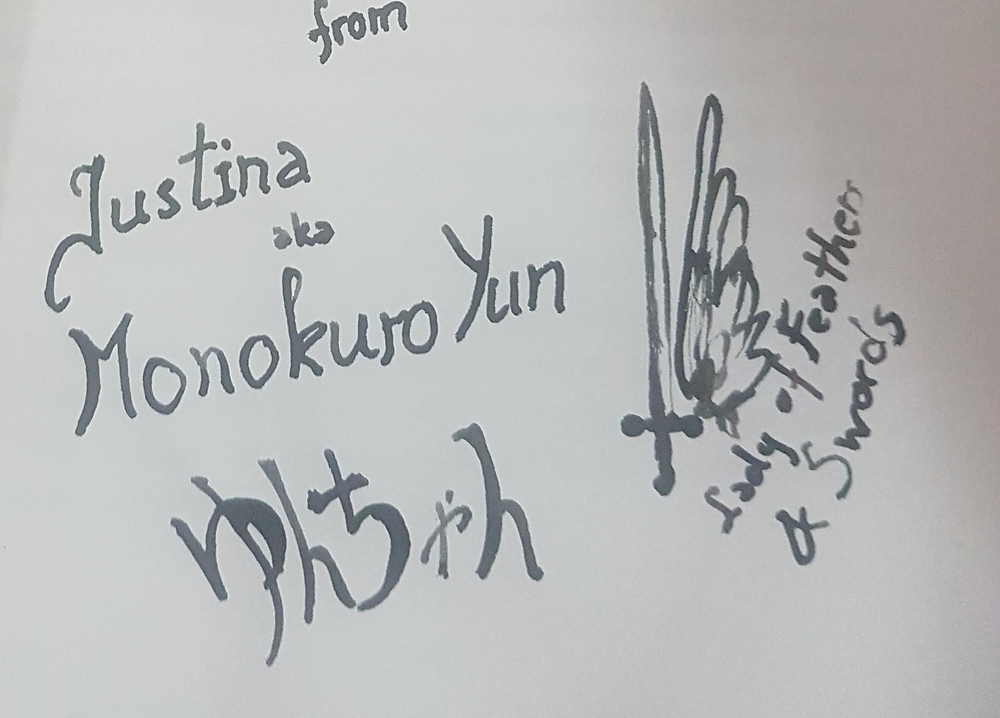 from
Justina
aka
Monokuro Yun
ゆんちゃん
Lady of Feathers
& Swords